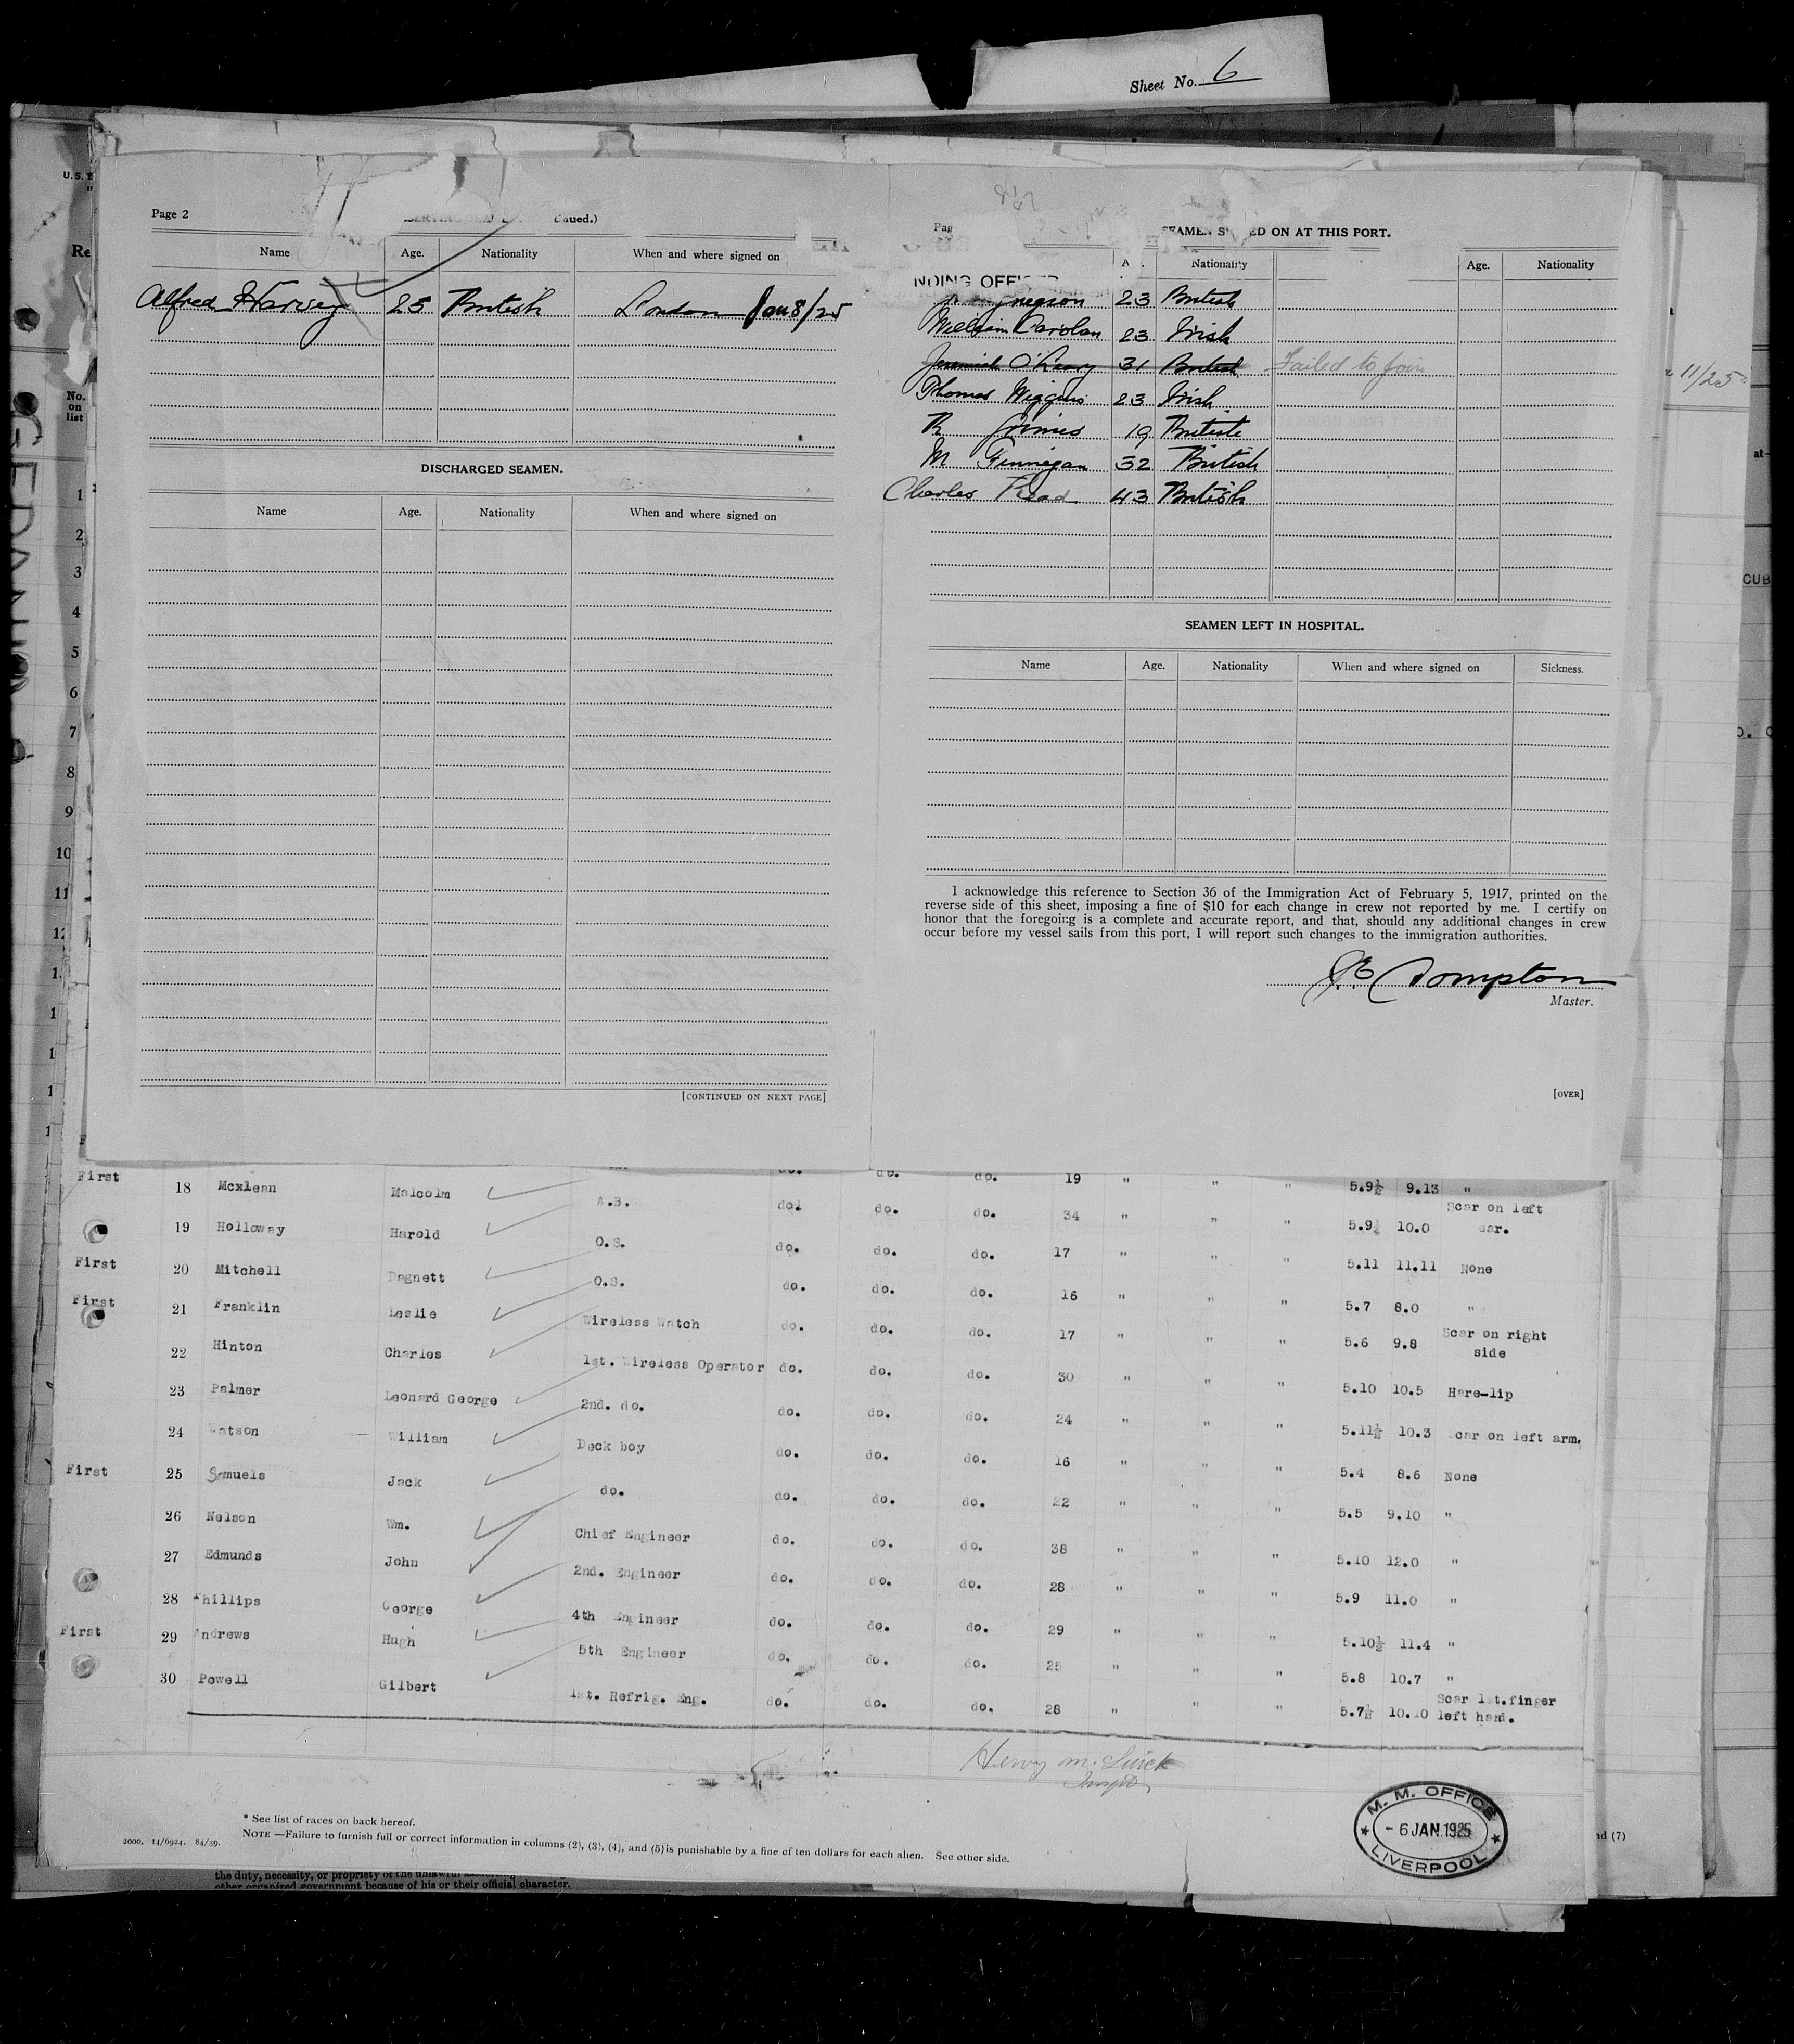 Sheet No. 6
Page 2
Name Age. Nationality When and where signed on
Alfred Harvey 25 British London Jan 8/25
DISCHARGED SEAMEN.
Name Age. Nationality When and where signed on
[CONTINUED ON NEXT PAGE]
ON AT THIS PORT.
Nationality Age. Nationality
23 British
William Carolan 23 Irish
O'Leary 31 British Failed to join
Thomas Wiggins 23 Irish
R Grimes 19 British
M Finnegan 32 British
Charles Read 43 British
SEAMEN LEFT IN HOSPITAL.
Name Age. Nationality When and where signed on Sickness.
I acknowledge this reference to Section 36 of the Immigration Act of February 5, 1917, printed on the
reverse side of this sheet, imposing a fine of $10 for each change in crew not reported by me. I certify on
honor that the foregoing is a complete and accurate report, and that, should any additional changes in crew
occur before my vessel sails from this port, I will report such changes to the immigration authorities.
Compton
Master.
[OVER]
11/25
No.
on
list
1
2
3
4
5
6
7
8
9
10
11
First 18 Mcxlean Malcolm do. do. 19 " " " 5.9½ 9.13 "
19 Holloway Harold A.B. do. do. do. 34 " " " 5.9½ 10.0 Scar on left ear.
First 20 Mitchell Dagnett O.S. do. do. do. 17 " " " 5.11 11.11 None
First 21 Franklin Leslie O.S. do. do. do. 16 " " " 5.7 8.0 "
22 Hinton Charles Wireless Watch do. do. do. 17 " " " 5.6 9.8 Scar on right side
23 Palmer Leonard George 1st. Wireless Operator do. do. do. 30 " " " 5.10 10.5 Hare-lip
24 Watson William 2nd. do. do. do. do. 24 " " " 5.11½ 10.3 Scar on left arm.
First 25 Samuels Jack Deck boy do. do. do. 16 " " " 5.4 8.6 None
26 Nelson Wm. do. do. do. do. 22 " " " 5.5 9.10 "
27 Edmunds John Chief Engineer do. do. do. 38 " " " 5.10 12.0 "
28 Phillips George 2nd. Engineer do. do. do. 28 " " " 5.9 11.0 "
First 29 Andrews Hugh 4th Engineer do. do. do. 29 " " " 5.10½ 11.4 "
30 Powell Gilbert 5th Engineer do. do. do. 25 " " " 5.8 10.7 "
1st. Refrig. Eng. do. do. do. 28 " " " 5.7½ 10.10 Scar 1st.finger left hand.
* See list of races on back hereof.
NOTE —Failure to furnish full or correct information in columns (2), (3), (4), and (5) is punishable by a fine of ten dollars for each alien. See other side.
2000. 14/6924. 84/59.
M. M. OFFICE
- 6 JAN.1925
LIVERPOOL
the duty, necessity, or propriety of the unlawful
other organized government because of his or their official character.